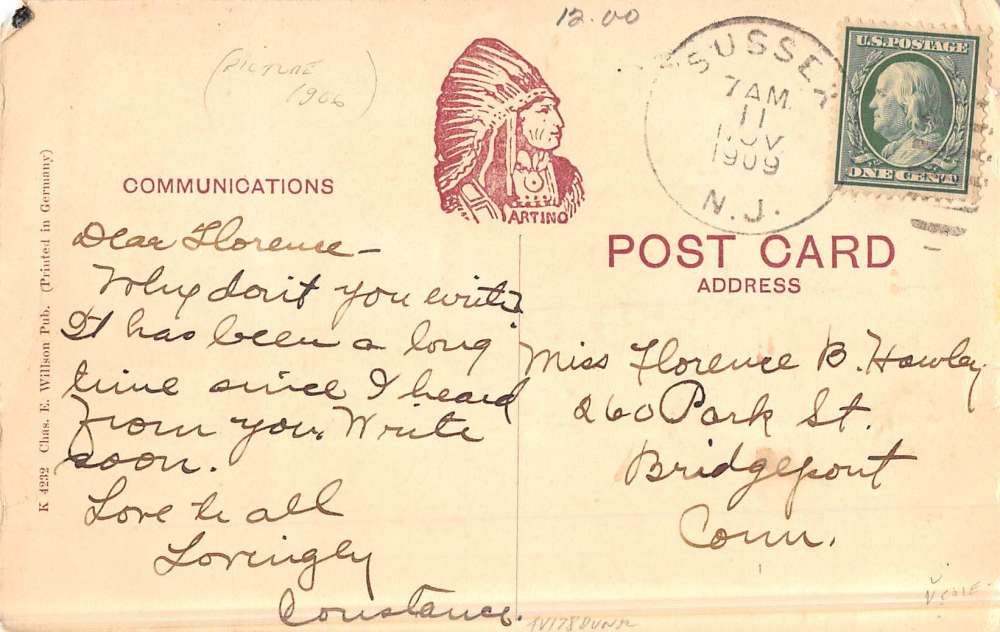 12.00
(PICTURE
1906)
SUSSEX
7 AM
11
NOV
1909
N.J.
U.S. POSTAGE
ONE CENT
ARTINO
COMMUNICATIONS
POST CARD
ADDRESS
K 4232 Chas. E. Willson Pub. (Printed in Germany)
Dear Florence—
Why don't you write?
It has been a long
time since I heard
from you. Write
soon.
Love to all
Lovingly
Constance.
Miss Florence B. Hawley
260 Park St.
Bridgeport
Conn.